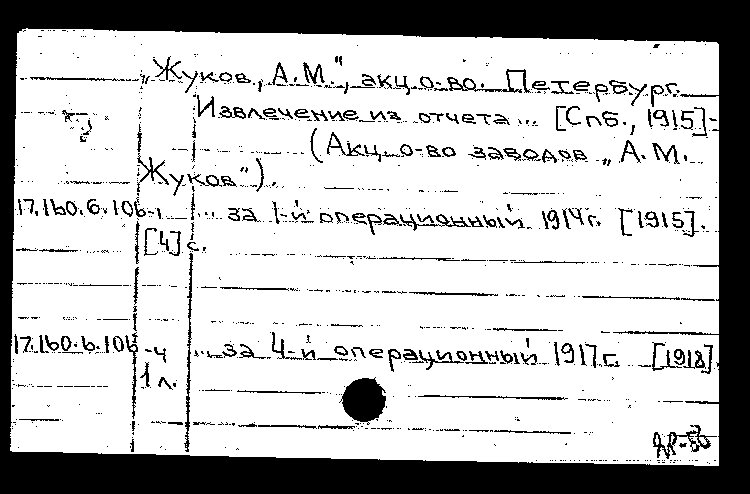 „Жуков, А.М.", акц. о-во. Петербург.
Извлечение из отчета... [Спб., 1915]-
(Акц. о-во заводов „А.М.
Жуков").
17.160.6.106-1 ... за 1-й операционный 1914г. [1915].
[4] с.
17.160.6.106-4 ... за 4-й операционный 1917г. [1918].
1 л.